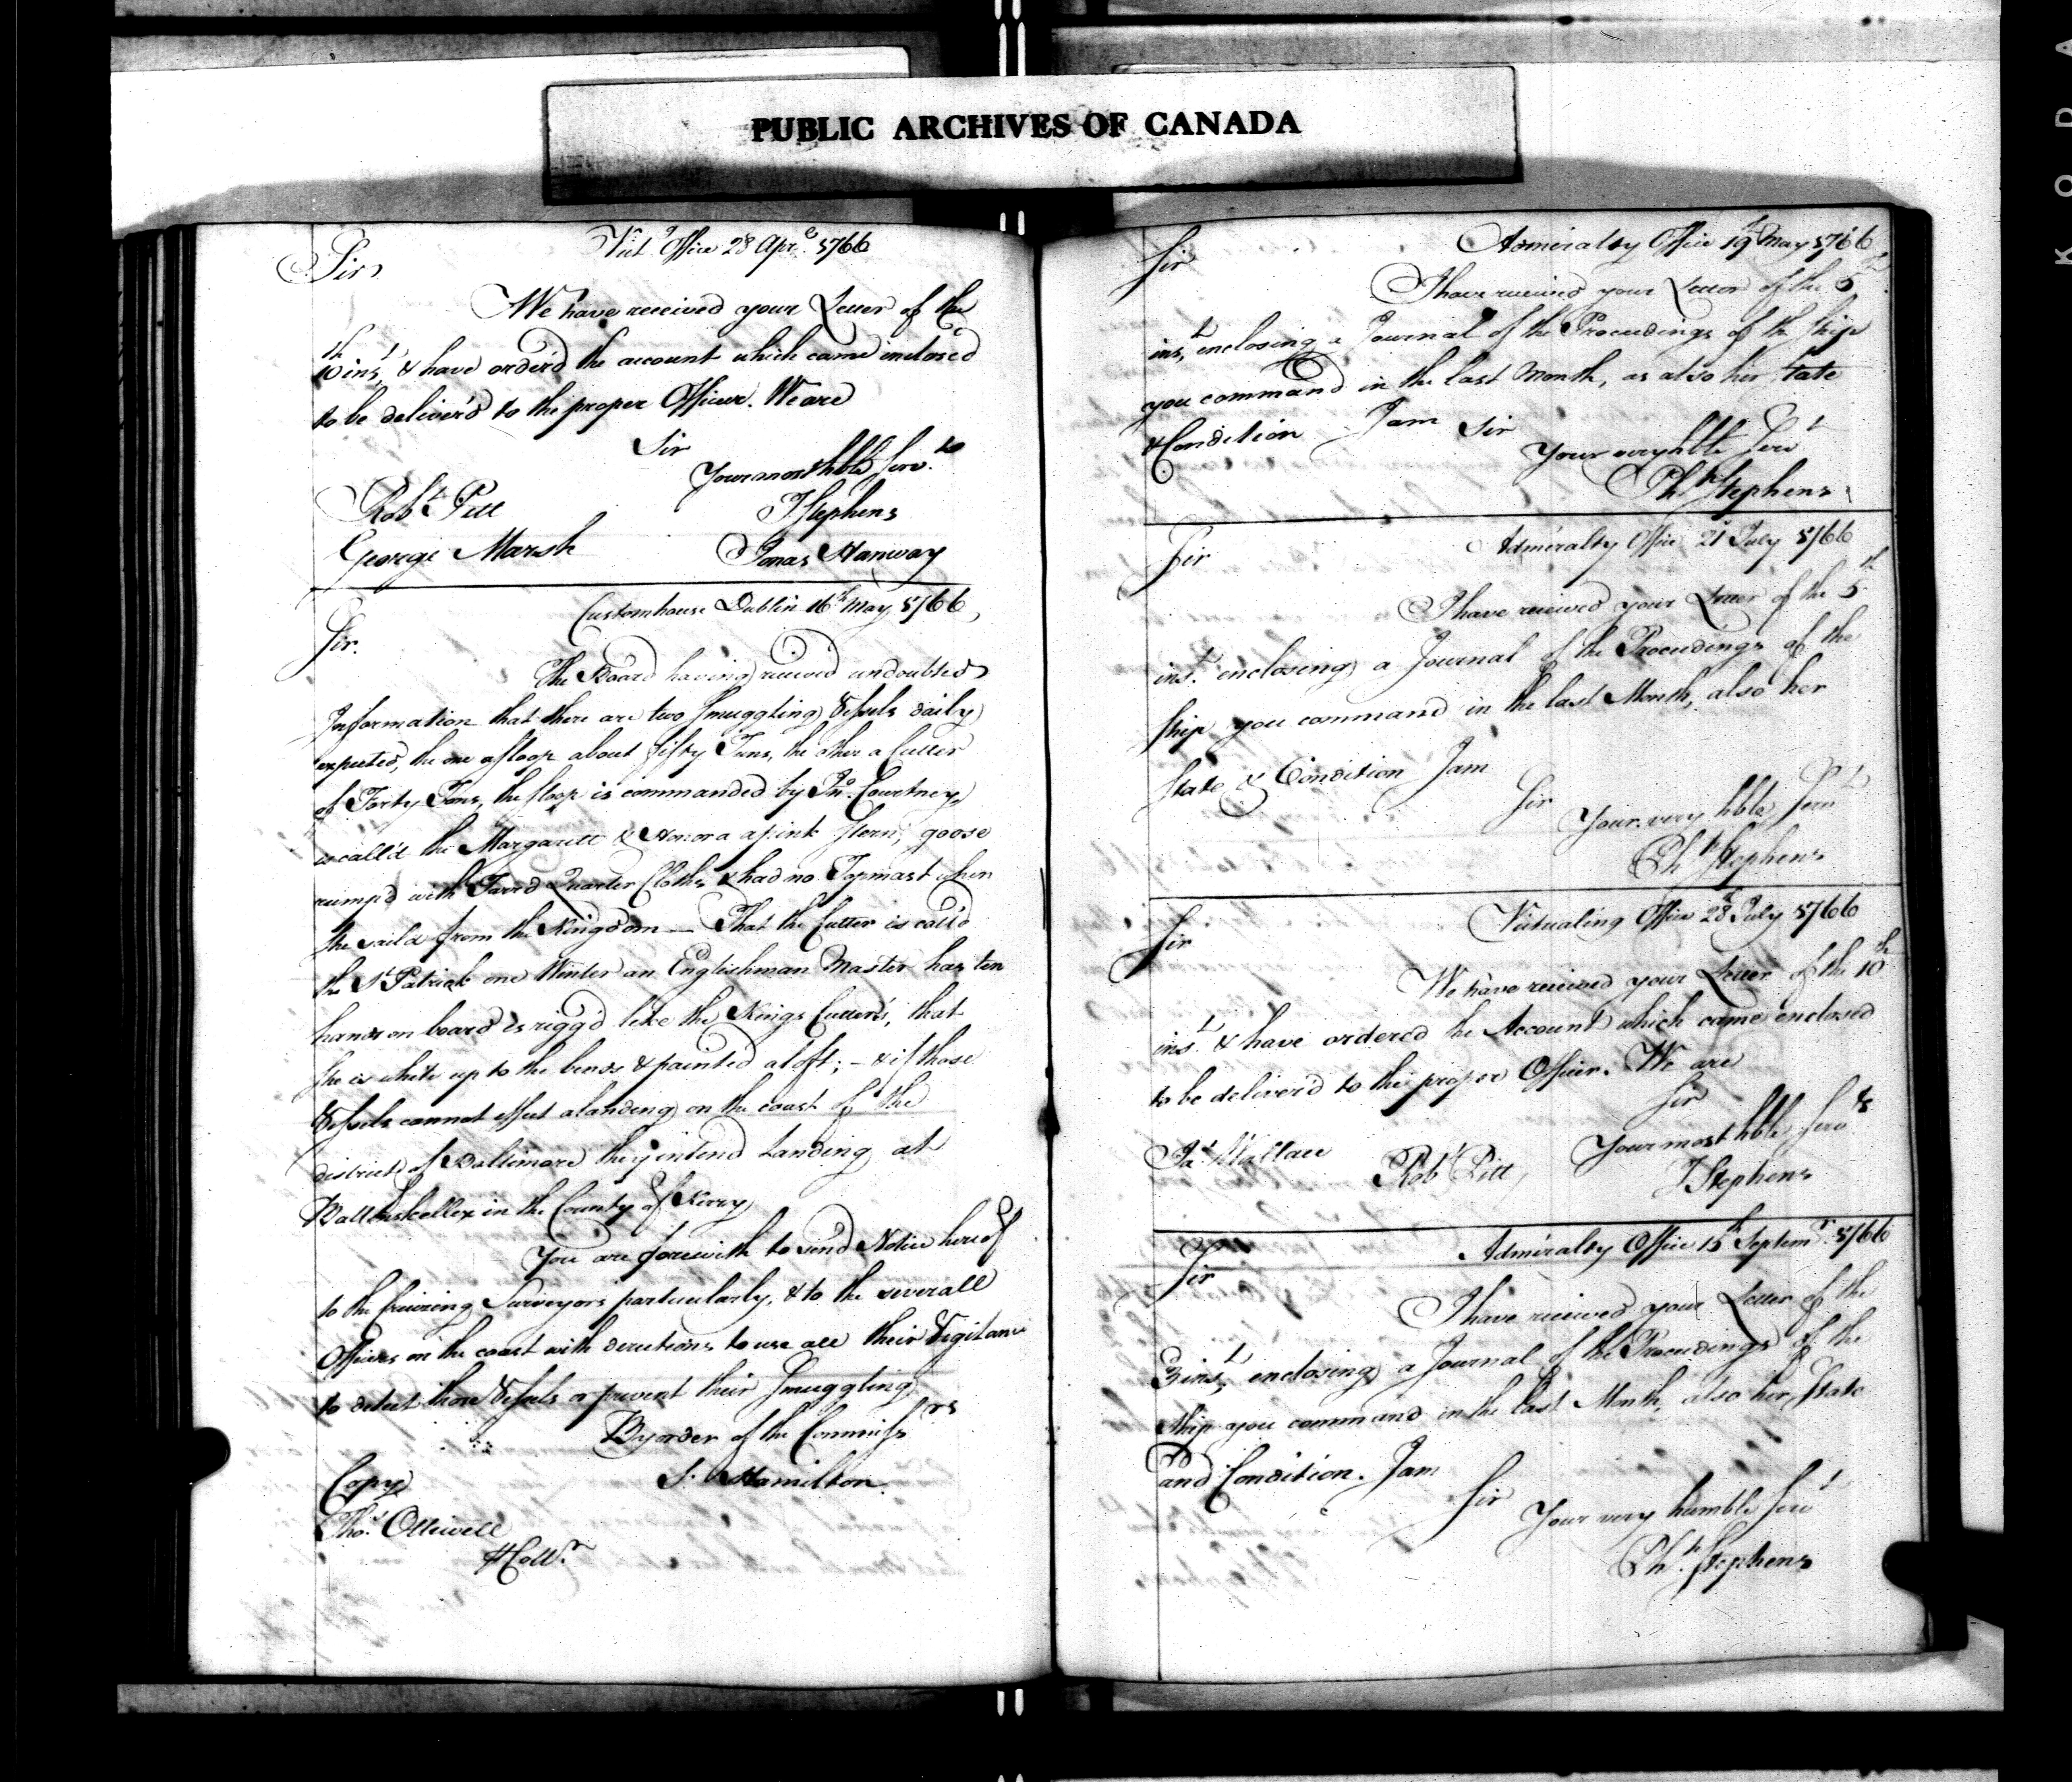 PUBLIC ARCHIVES OF CANADA
Vict.g Office 28 Apr.l 1766
Sir
We have received your Letter of the
10th ins.t & have order'd the account which came inclosed
to be deliver'd to the proper Officer. We are
Sir
Your most hble Serv.ts
Rob.t Pett
T Stephens
George Marsh
Jonas Hanway
Customhouse Dublin 16th May 1766
Sir.
The Board having receiv'd undoubted
Information that there are two smuggling Vessels daily
expected, the one a sloop about fifty Tuns, the other a Cutter
of Forty Tons, the sloop is commanded by Jn.o Courtney,
is call'd the Margarett & Honora a pink stern, goose
rump'd with Tarr'd Quarter Cloths & had no Topmast when
she sail'd from the Kingdom — That the Cutter is call'd
the S.t Patrick one Winter an Englishman Master has ten
hands on board is rigg'd like the Kings Cutters, that
she is white up to the bends & painted aloft; — & if those
Vessels cannot effect a landing on the coast of the
district of Baltimore they intend Landing at
in the County of Kerry
You are forewith to send Notice hereof
to the Cruizing Surveyors particularly, & to the severall
Officers on the coast with directions to use all their Vigilance
to detect those Vessels or prevent their Smuggling
By order of the Commiss.rs
Copy
S. Hamilton
Tho.s Ottiwell
Coll.r
Admiralty Office 19th May 1766
Sir
I have received your Letter of the 5th
ins.t enclosing a Journal of the Proceedings of the ship
you command in the last Month, as also her state
& Condition I am Sir
Your very hble Serv.t
Ph.p Stephens
Admiralty Office 21 July 1766
Sir
I have received your Letter of the 5th
ins.t enclosing a Journal of the Proceedings of the
ship you command in the last Month, also her
state & Condition I am
Sir
Your very hble Serv.t
Ph.p Stephens
Victualing Office 28 July 1766
Sir
We have received your Letter of the 10th
ins.t & have ordered the Account which came enclosed
to be deliver'd to the proper Officer. We are
Sir
Your most hble Serv.ts
Ja.s Wallace Rob.t Pett
T Stephens
Admiralty Office 15th Septem.r 1766
Sir
I have received your Letter of the
3 ins.t enclosing a Journal of the Proceedings of the
ship you command in the last Month, also her State
and Condition. I am
Sir
Your very humble Serv.t
Ph.p Stephens